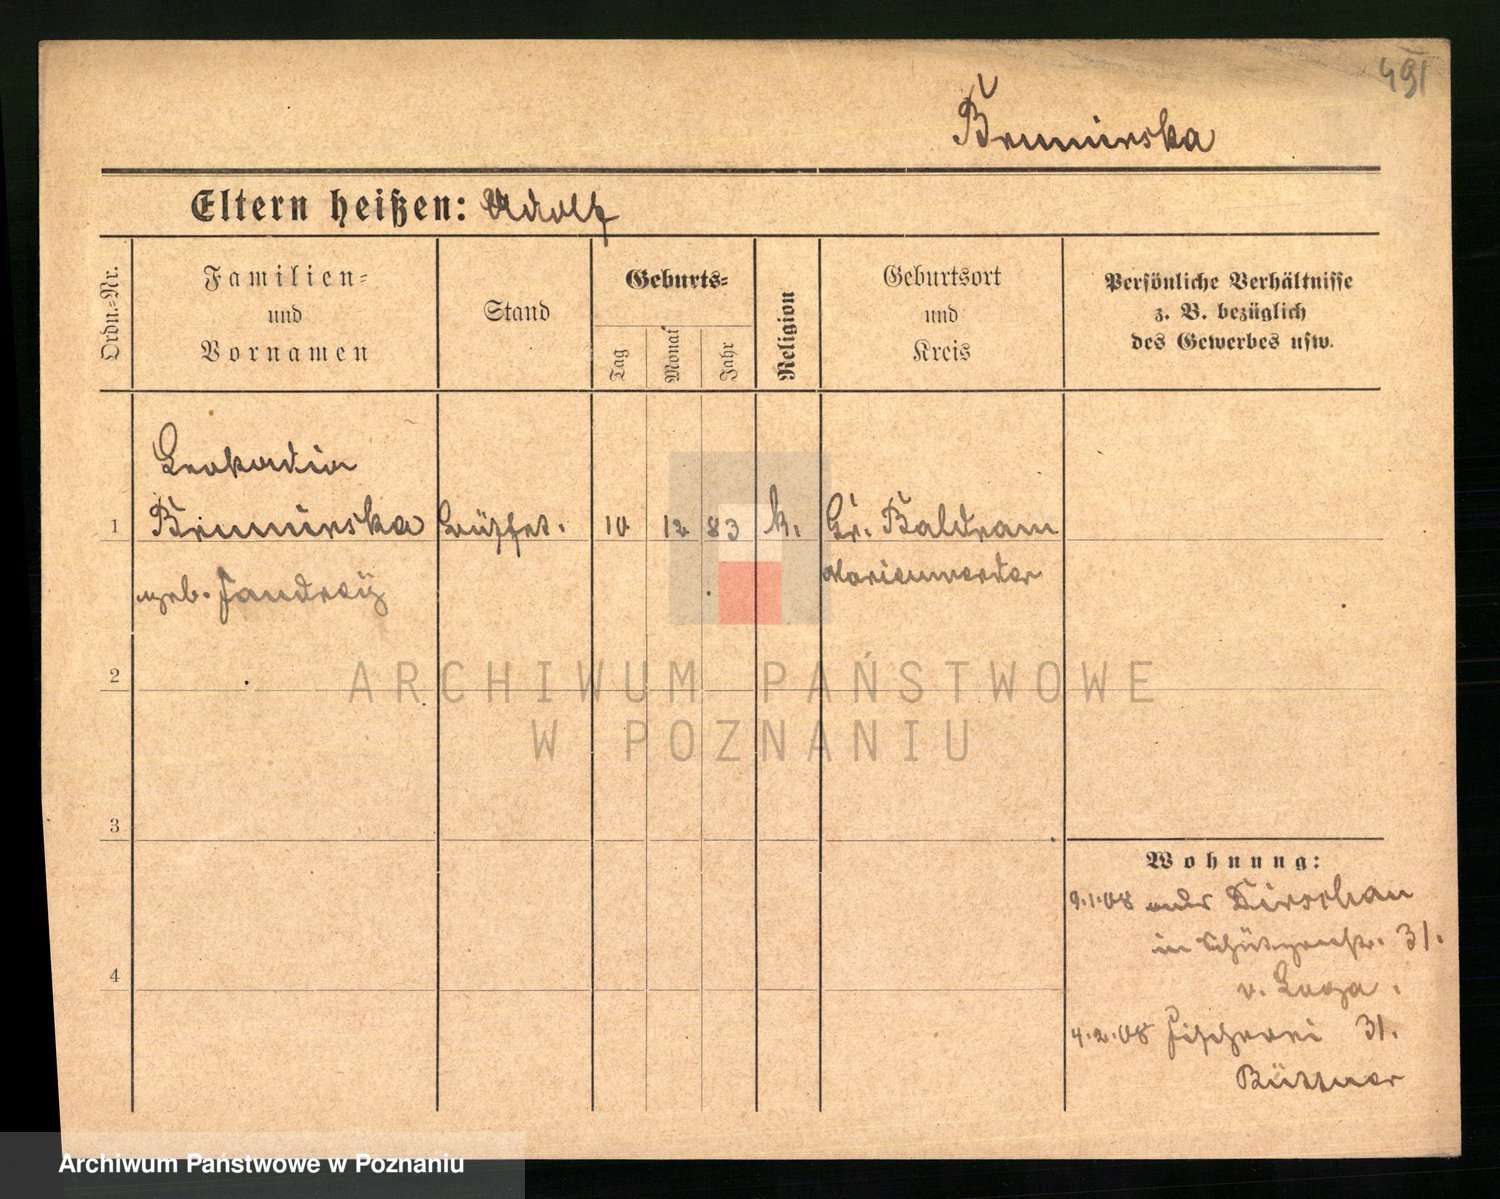 491
Bruminska
Eltern heißen: Adolf
Ordn.-Nr.
Familien-
und
Vornamen
Stand
Geburts-
Tag
Monat
Jahr
Religion
Geburtsort
und
Kreis
Persönliche Verhältnisse
z. B. bezüglich
des Gewerbes usw.
Leokadia
1 Bruminska 10 12 83 k. Gr. Baldram
geb. Marienwerder
2
3
4
Wohnung:
9.1.08 aus Dirschau
in Schützenstr. 31.
v.
4.2.08 Fischerei 31.
Büttner
ARCHIWUM PAŃSTWOWE
W POZNANIU
Archiwum Państwowe w Poznaniu